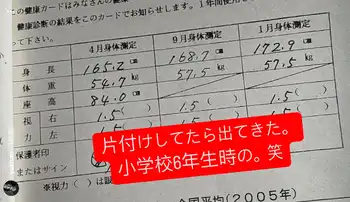 の健康カードはみなさんの健
健康診断の結果をこのカードでお知らせします。1年間使用
って下さい。
4月身体測定 9月身体測定 1月身体測定
身長 165.2 cm 168.7 cm 172.9 cm
体重 54.7 kg 57.5 kg 57.5 kg
座高 84.0 cm
視右 1.5( ) 1.5( ) 1.5( )
力左 1.5( ) 1.5
保護者印
またはサイン
片付けしてたら出てきた。
小学校6年生時の。笑
※視力( )は眼
全国平均(2005年)